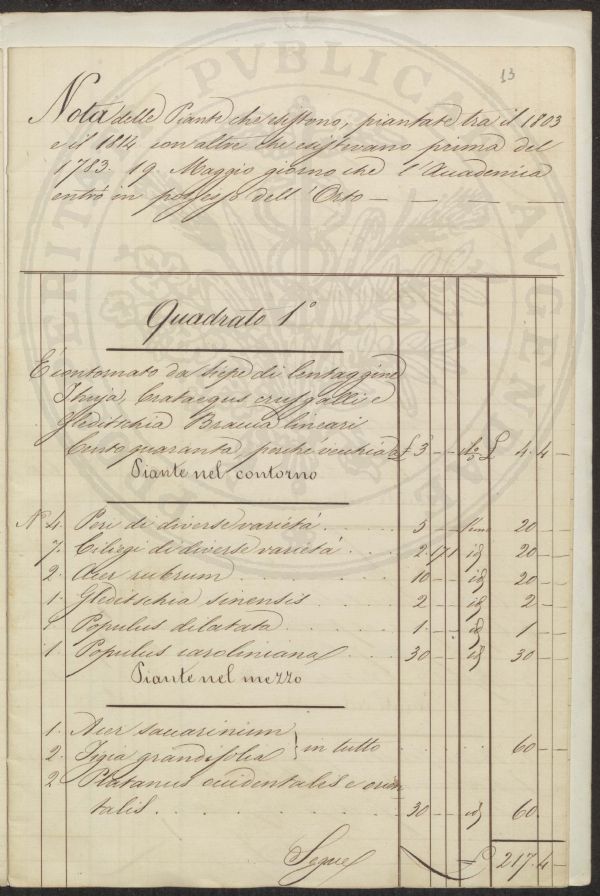 13
Nota delle Piante che esistono, piantate tra il 1803
e il 1814 con altre che esistevano prima del
1783. 19 Maggio giorno che l'Accademia
entrò in possesso dell'Orto — — — —
Quadrato 1°
È contornato da siepe di Lentaggine
Thuja, Crataegus crusgalli, e
Gleditschia Braccia lineari
Cento quaranta, perché vecchia £ 3 — — £ 4. 4 —
Piante nel contorno
N° 4. Peri di diverse varietà . . . 5 — — l'uno 20 — —
7. Ciliegi di diverse varietà . . . 2. 17 1 id 20 — —
2. Acer rubrum . . . . 10 — — id 20 — —
1. Gleditschia sinensis . . . . 2 — — id 2 — —
1. Populus dilatata . . . . 1 — — id 1 — —
1. Populus caroliniana . . . 30 — — id 30 — —
Piante nel mezzo
1. Acer saccarinium
2. Tigia grandifolia } in tutto . . . . 60 — —
2 Platanus occidentalis e orien-
talis . . . . . . . . 30 — — id 60.
Segue £ 217. 4 —
PVBLICA
AVGENDAE